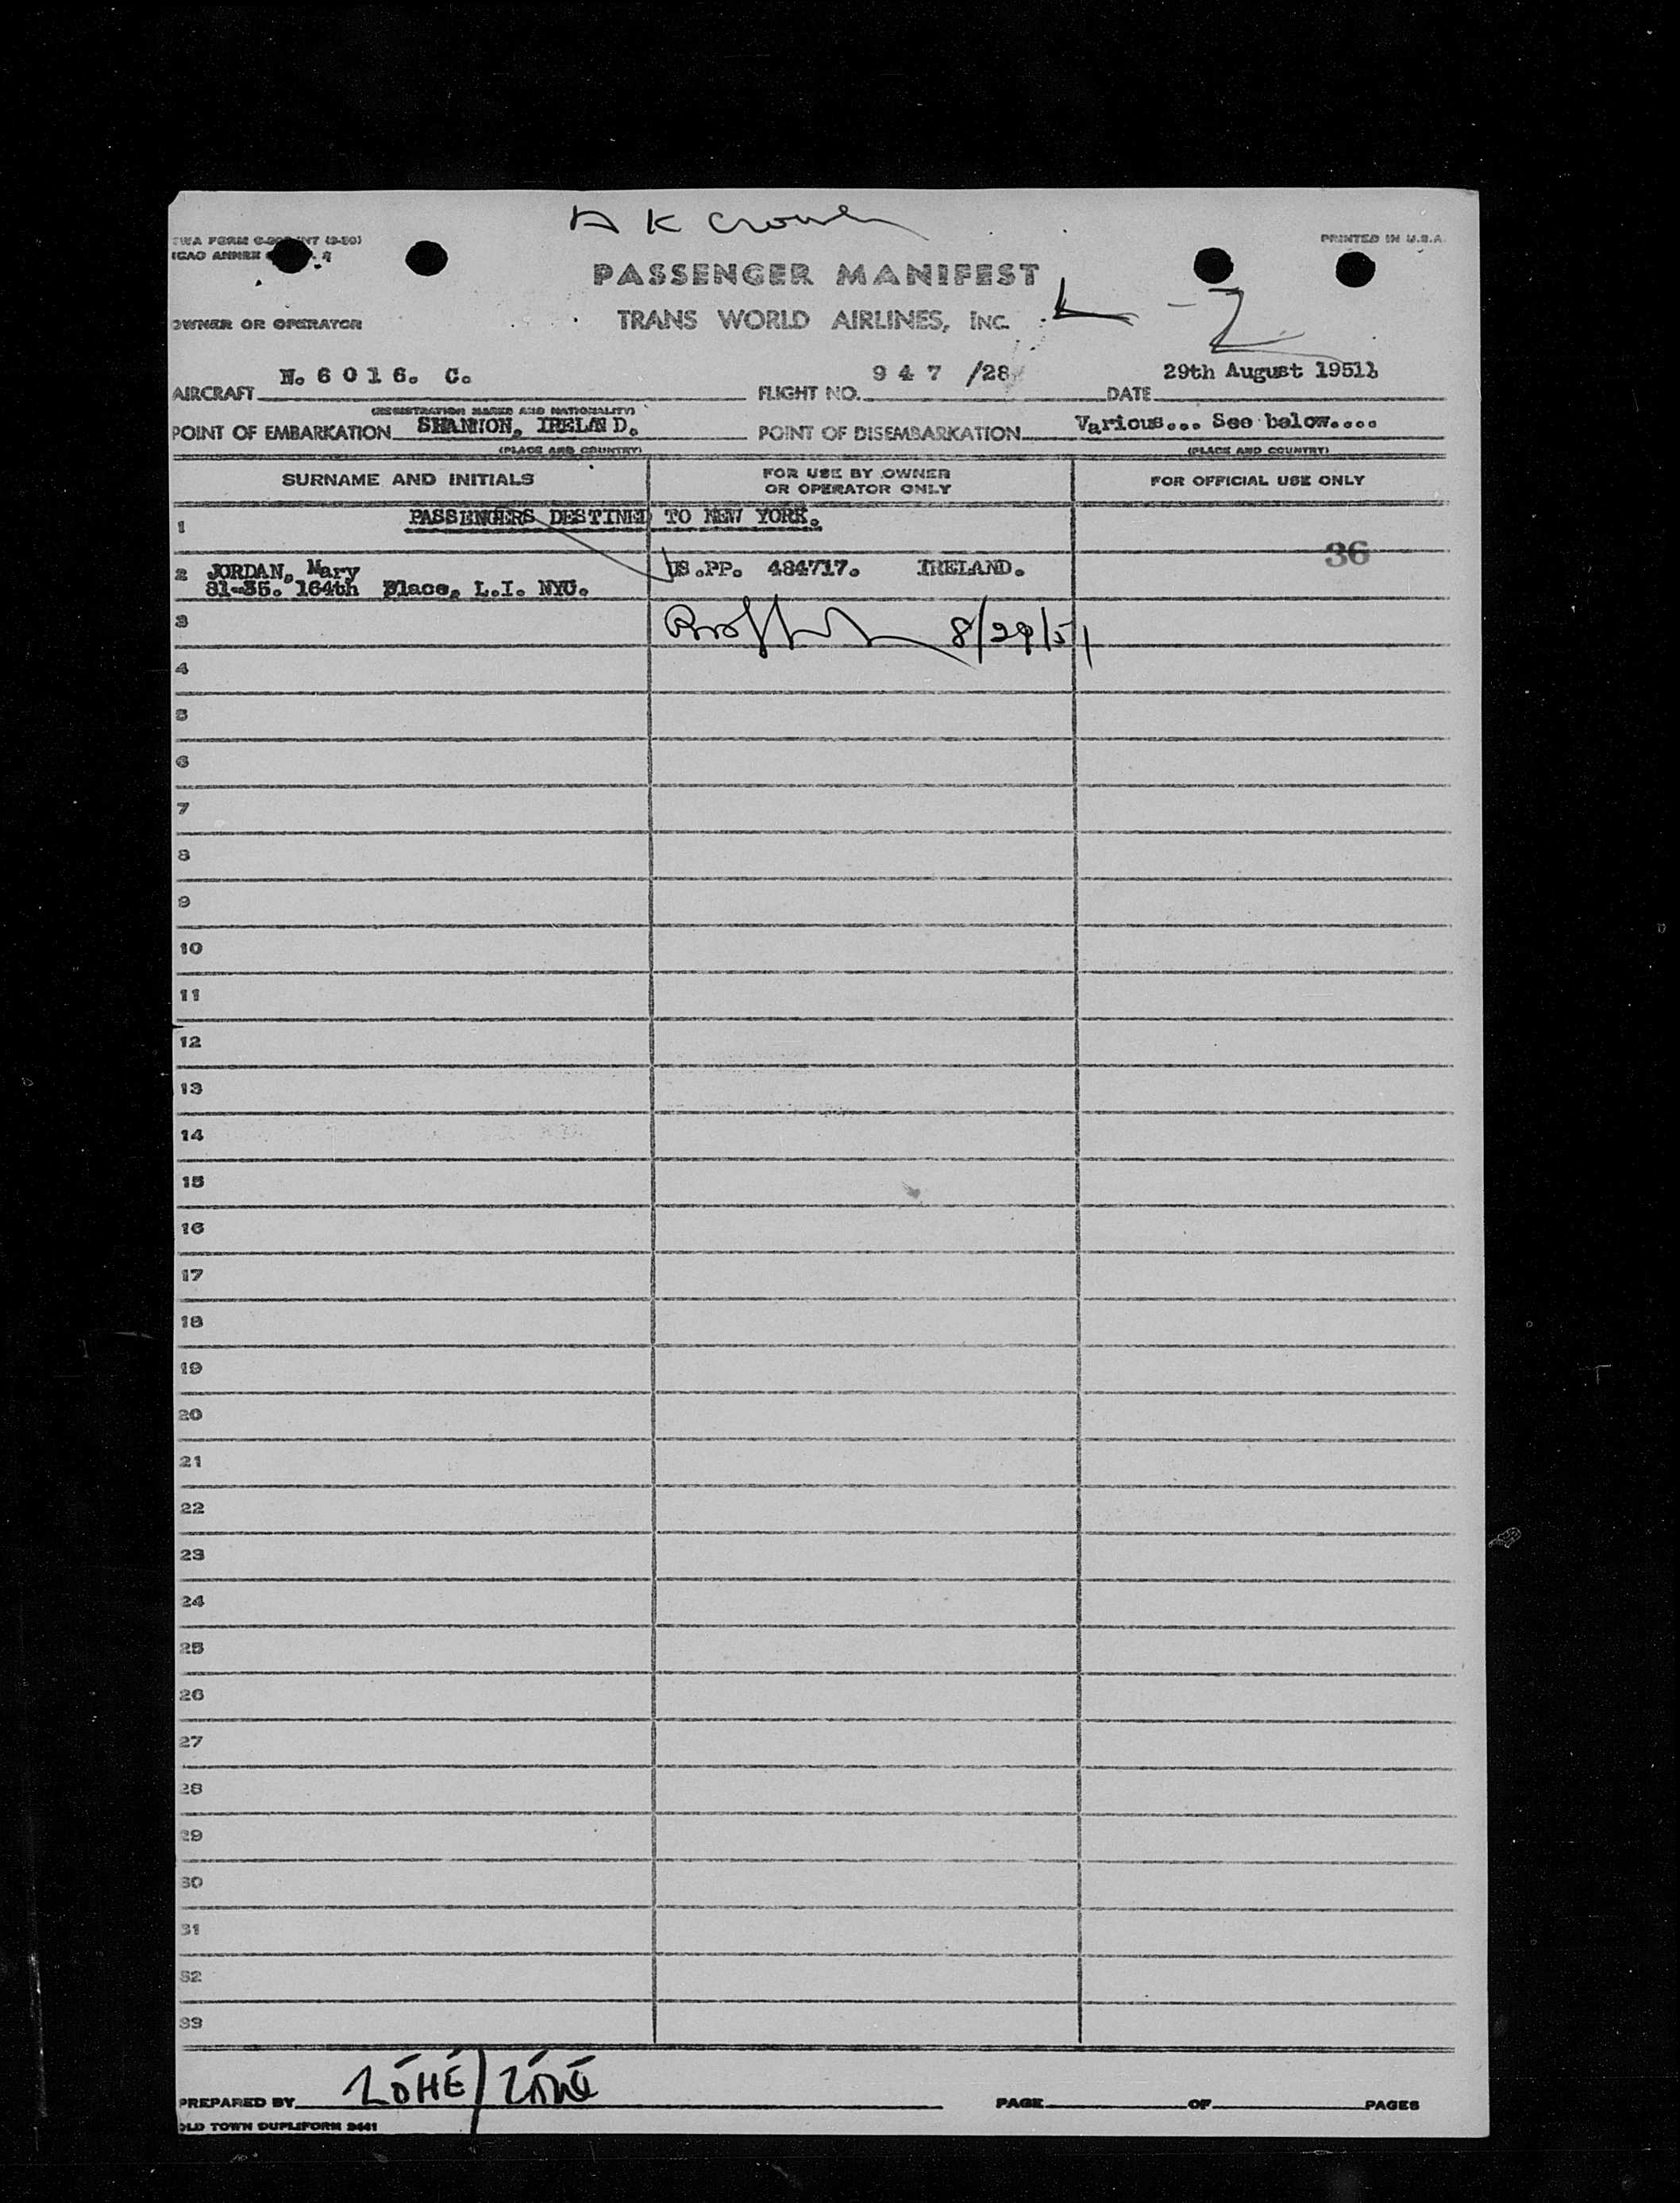 A K Crowley
TWA FORM C-
PRINTED IN U.S.A.
ICAO ANNEX
PASSENGER MANIFEST
OWNER OR OPERATOR TRANS WORLD AIRLINES, INC. L - Z
AIRCRAFT N. 6 0 1 6. C. FLIGHT NO. 9 4 7 /28 DATE 29th August 1951
(REGISTRATION MARKS AND NATIONALITY)
POINT OF EMBARKATION SHANNON, IRELAND. POINT OF DISEMBARKATION Various... See below....
(PLACE AND COUNTRY) (PLACE AND COUNTRY)
SURNAME AND INITIALS FOR USE BY OWNER OR OPERATOR ONLY FOR OFFICIAL USE ONLY
1 PASSENGERS DESTINED TO NEW YORK.
36
2 JORDAN, Mary US.PP. 484717. IRELAND.
81-35. 164th Place, L.I. NYC.
3 8/29/51
4
5
6
7
8
9
10
11
12
13
14
15
16
17
18
19
20
21
22
23
24
25
26
27
28
29
30
31
32
33
PREPARED BY PAGE OF PAGES
OLD TOWN DUPLIFORM 9441